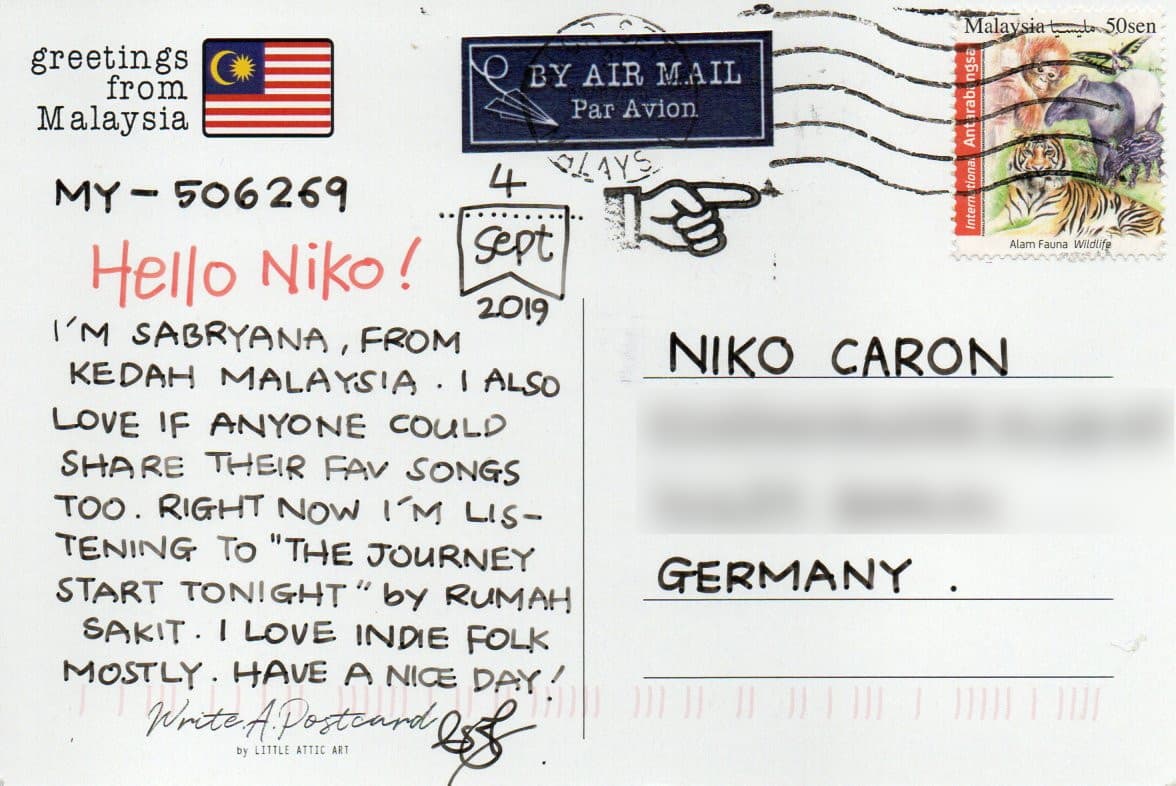 greetings
from
Malaysia
BY AIR MAIL
Par Avion
Malaysia مليسيا 50sen
International Antarabangsa
Alam Fauna Wildlife
ALAYS
MY-506269
4
Sept
2019
Hello Niko!
I'M SABRYANA, FROM
KEDAH MALAYSIA. I ALSO
LOVE IF ANYONE COULD
SHARE THEIR FAV SONGS
TOO. RIGHT NOW I'M LIS-
TENING TO "THE JOURNEY
START TONIGHT" by RUMAH
SAKIT. I LOVE INDIE FOLK
MOSTLY. HAVE A NICE DAY!
Write.A.Postcard
by LITTLE ATTIC ART
NIKO CARON
GERMANY.